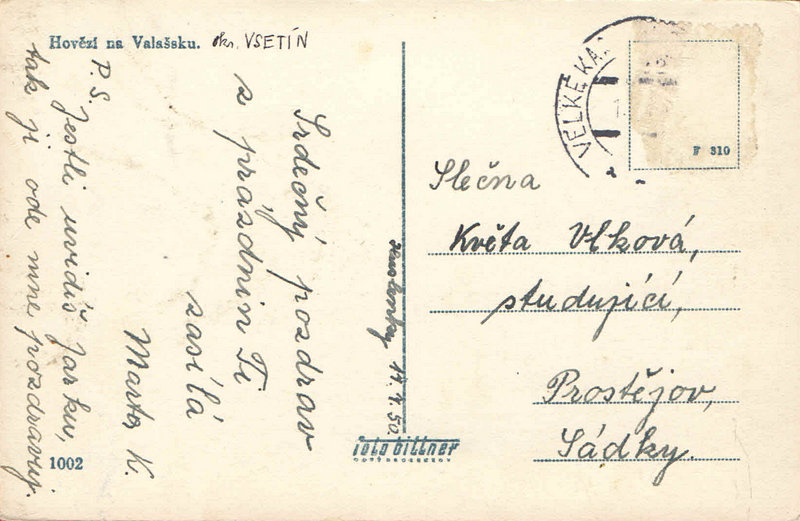 Hovězí na Valašsku. okr. VSETÍN
Srdečný pozdrav
z prázdnin Ti
zasílá
Marta K.
P.S. Jestli uvidíš Jarku,
tak ji ode mne pozdravuj.
1002
17. 7. 50.
foto bittner
VELKÉ KA
F 310
Slečna
Květa Vlková,
studující,
Prostějov,
Sádky.